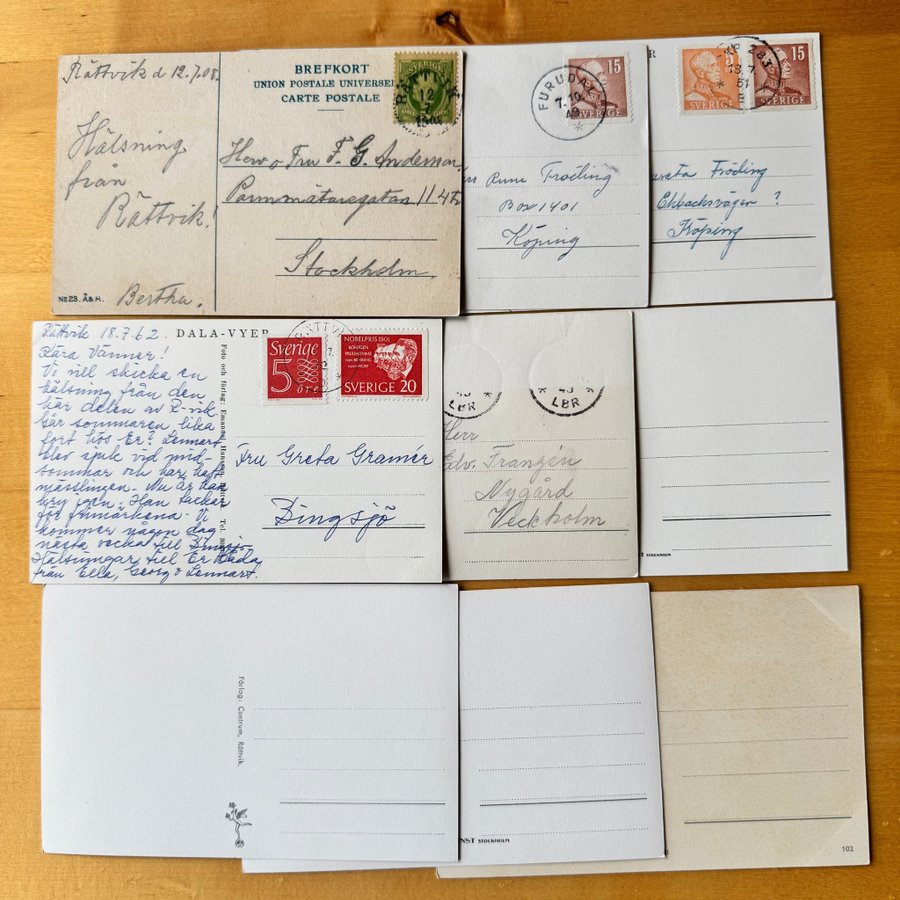 Rättvik d 12.7.08.
BREFKORT
UNION POSTALE UNIVERSEL
CARTE POSTALE
SVERIGE
Hälsning
från
Rättvik!
Bertha.
Herr o Fru F. G. Anderson,
Parmmätaregatan 11 4tr
Stockholm.
No 23. Ä & H.
FURUDAL
7.10
49
15
SVERIGE
Rune Froding
Box 1401
Köping
R
5
SVERIGE
15
SVERIGE
283
13.7.
51
Fröding
Ekbacksvägen ?
Köping
Rättvik 18.7.62.
Kära Vänner!
Vi vill skicka en
hälsning från den
här delen av R-vik
här sommaren lika
fort hös Er? Lennart
blev sjuk vid mid-
sommar och har haft
mässlingen. Nu är han
kry igen. Han tackar
för frimärkena. Vi
kommer någon dag
nästa vecka till Bingsjö.
Hälsningar till Er båda
från Ella, Georg o Lennart.
DALA-VYER
Foto och förlag: Emanuel
Sverige
5
ÖRE
NOBELPRIS 1901
SVERIGE 20
Fru Greta Gramér
Bingsjö
LBR
LBR
Herr
Edv. Frangén
Nygård
Veckholm
STOCKHOLM
Förlag: Centrum, Rättvik.
NST STOCKHOLM
102